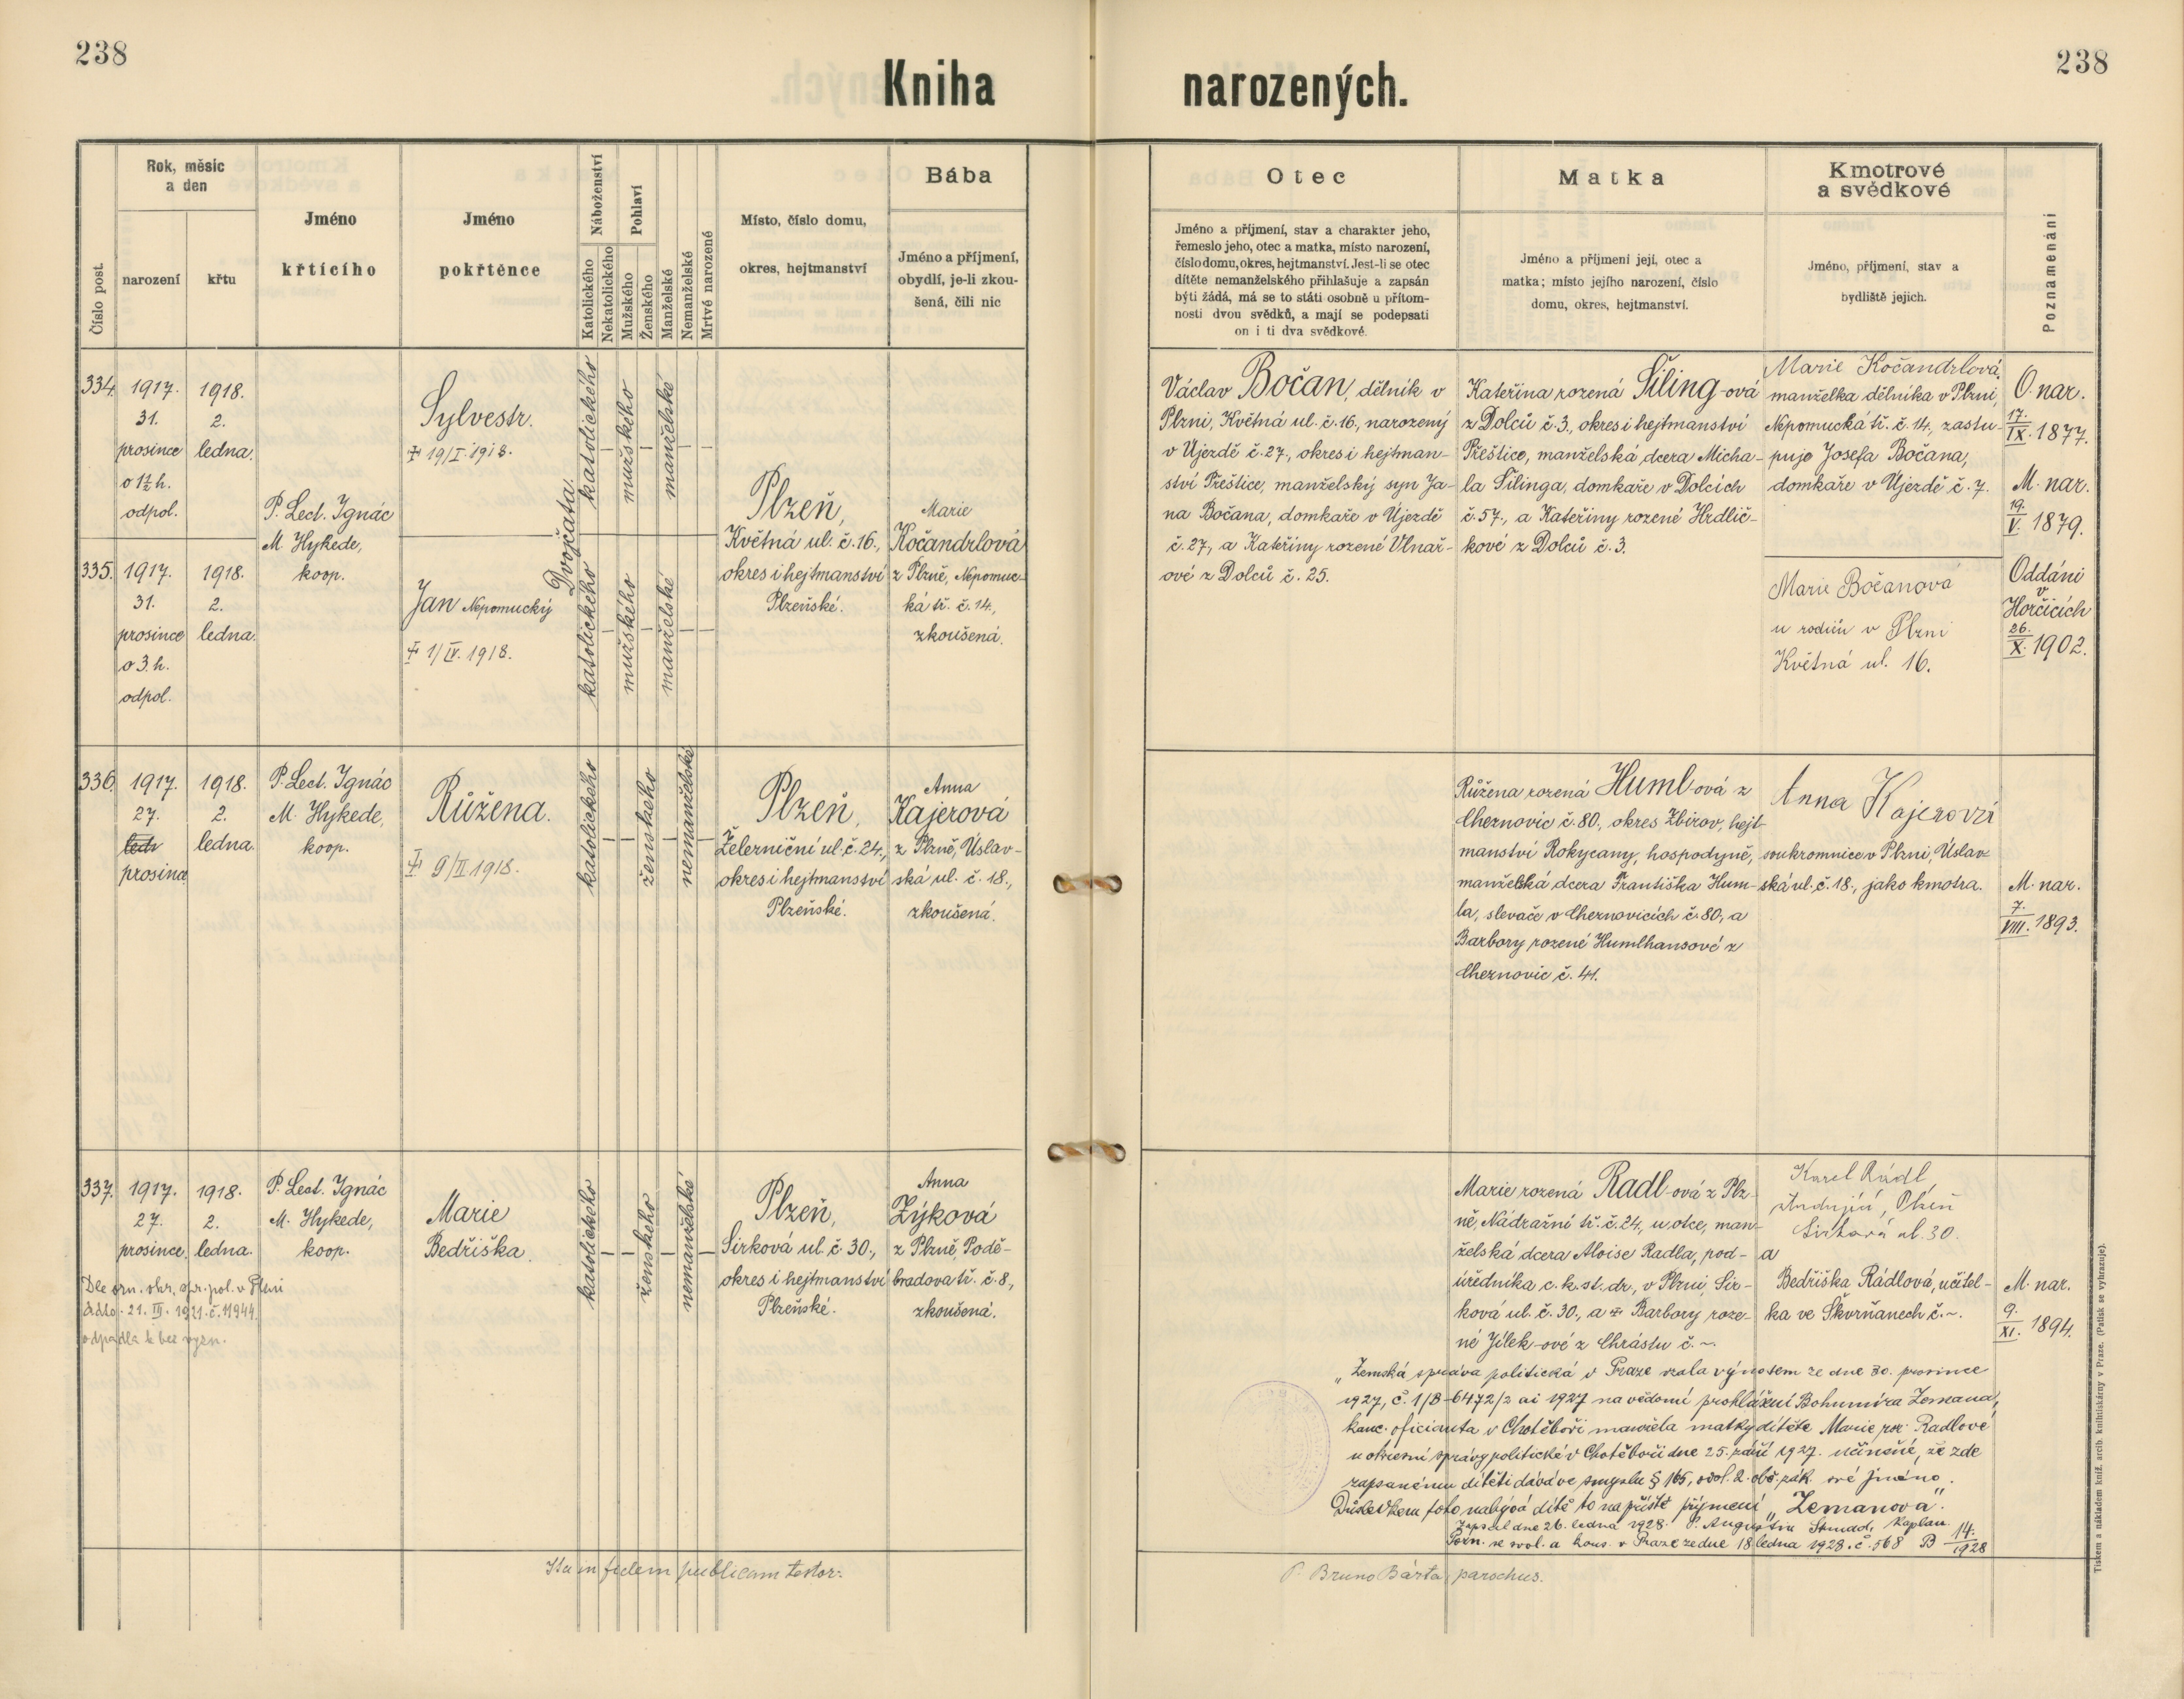 238
Kniha narozených.
238
Číslo post.
Rok, měsíc
a den
narození
křtu
Jméno
křtícího
Jméno
pokřtěnce
Náboženství
Katolického
Nekatolického
Pohlaví
Mužského
Ženského
Manželské
Nemanželské
Mrtvé narozené
Místo, číslo domu,
okres, hejtmanství
Bába
Jméno a příjmení,
obydlí, je-li zkou-
šená, čili nic
Otec
Jméno a příjmení, stav a charakter jeho,
řemeslo jeho, otec a matka, místo narození,
číslo domu, okres, hejtmanství. Jest-li se otec
dítěte nemanželského přihlašuje a zapsán
býti žádá, má se to státi osobně u přítom-
nosti dvou svědků, a mají se podepsati
on i ti dva svědkové.
Matka
Jméno a příjmení její, otec a
matka; místo jejího narození, číslo
domu, okres, hejtmanství.
Kmotrové
a svědkové
Jméno, příjmení, stav a
bydliště jejich.
Poznamenání
334.
1917.
31.
prosince
o 1½ h.
odpol.
1918.
2.
ledna.
P. Lect. Ignác
M. Hykede,
koop.
Sylvestr.
19/I. 1918.
Dvojčata.
katolického
mužského
manželské
Plzeň,
Květná ul. č. 16.,
okres i hejtmanství
Plzeňské.
Marie
Kočandrlová
z Plzně, Nepomuc-
ká tř. č. 14.,
zkoušená.
Václav Bočan, dělník v
Plzni, Květná ul. č. 16., narozený
v Újezdě č. 27., okres i hejtman-
ství Přeštice, manželský syn Ja-
na Bočana, domkaře v Újezdě
č. 27., a Kateřiny rozené Vlnař-
ové z Dolců č. 25.
Kateřina rozená Šiling-ová
z Dolců č. 3., okres i hejtmanství
Přeštice, manželská dcera Micha-
la Šilinga, domkaře v Dolcích
č. 57., a Kateřiny rozené Hrdlič-
kové z Dolců č. 3.
Marie Kočandrlová,
manželka dělníka v Plzni,
Nepomucká tř. č. 14., zastu-
puje Josefa Bočana,
domkaře v Újezdě č. 7.
O. nar.
17./IX. 1877.
M. nar.
19./V. 1879.
Oddáni
v
Horčicích
26./X. 1902.
335.
1917.
31.
prosince
o 3. h.
odpol.
1918.
2.
ledna.
Jan Nepomucký
1/IV. 1918.
katolického
mužského
manželské
Marie Bočanová
u rodičů v Plzni
Květná ul. 16.
336.
1917.
27.
prosince
1918.
2.
ledna
P. Lect. Ignác
M. Hykede,
koop.
Růžena.
9/II 1918.
katolického
ženského
nemanželské
Plzeň,
Železniční ul. č. 24.,
okres i hejtmanství
Plzeňské.
Anna
Kajerová
z Plzně, Úslav-
ská ul. č. 18.,
zkoušená.
Růžena rozená Huml-ová z
Cheznovic č. 80., okres Zbirov, hejt-
manství Rokycany, hospodyně,
manželská dcera Františka Hum-
la, slevače v Cheznovicích č. 80., a
Barbory rozené Humlhansové z
Cheznovic č. 41.
Anna Kajerová
soukromnice v Plzni, Úslav-
ská ul. č. 18., jako kmotra.
M. nar.
7./VIII. 1893.
337.
1917.
27.
prosince
1918.
2.
ledna.
P. Lect. Ignác
M. Hykede,
koop.
Marie
Bedřiška.
katolického
ženského
nemanželské
Plzeň,
Sirková ul. č. 30.,
okres i hejtmanství
Plzeňské.
Anna
Zýková
z Plzně, Podě-
bradova tř. č. 8.,
zkoušená.
Dle ozn. okr. spr. pol. v Plzni
ddto. 21. III. 1921. č. 11944.
odpadla k bez vyzn.
Marie rozená Radl-ová z Plz-
ně, Nádražní tř. č. 24., u otce, man-
želská dcera Aloise Radla, pod-
úředníka c. k. st. dr., v Plzni, Sir-
ková ul. č. 30., a Barbory roze-
né Jílek-ové z Chrástu č. ~.
Karel Rádl
Plzeň
Sirková ul. 30.
a
Bedřiška Rádlová, učitel-
ka ve Škvrňanech č. ~.
M. nar.
9./XI. 1894.
„Zemská správa politická v Praze vzala výnosem ze dne 30. prosince
1927, č. 1/B-6472/2 ai 1927 na vědomí prohlášení Bohumíra Zemana,
kanc. oficianta v Chotěboři manžela matky dítěte Marie roz. Radlové
u okresní správy politické v Chotěboři dne 25. září 1927. učiněné, že zde
zapsanému dítěti dává ve smyslu § 165, odst. 2. obč. zák. své jméno.
Důsledkem toho nabývá dítě to na příště příjmení „Zemanova“.
Zapsal dne 26. ledna 1928. P. Augustin Strnad, kaplan.
Pozn. se svol. a kons. v Praze ze dne 18 ledna 1928. č. 568 B 14./1928
Ita in fidem publicam testor:
P. Bruno Bárta, parochus.
Tiskem a nákladem kníž. arcib. knihtiskárny v Praze. (Patisk se vyhrazuje).